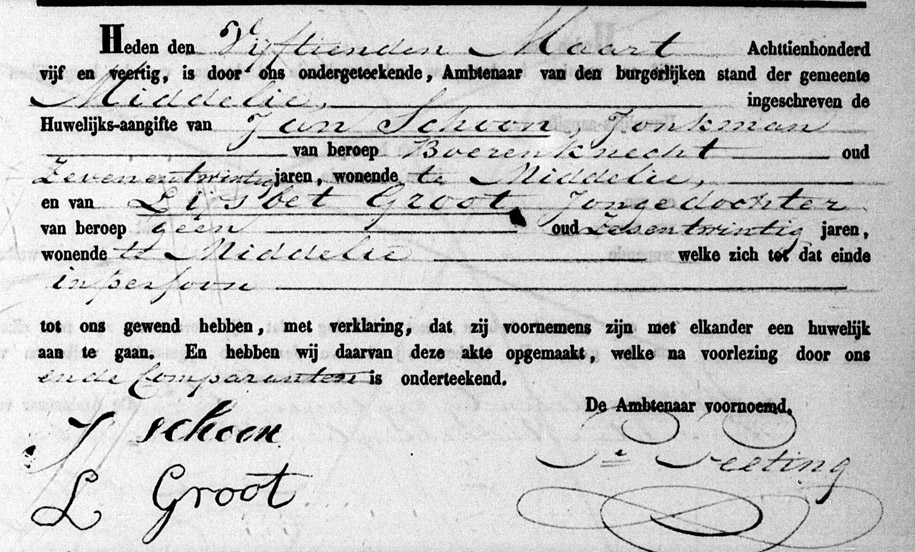 Heden den Vijftienden Maart Achttienhonderd
vijf en veertig, is door ons ondergeteekende, Ambtenaar van den burgerlijken stand der gemeente
Middelie, ingeschreven de
Huwelijks-aangifte van Jan Schoon, Jonkman
van beroep Boerenknecht oud
Zevenentwintig jaren, wonende te Middelie,
en van Lijsbet Groot, Jongedochter
van beroep geen oud Zesentwintig jaren,
wonende te Middelie welke zich tot dat einde
in persoon
tot ons gewend hebben, met verklaring, dat zij voornemens zijn met elkander een huwelijk
aan te gaan. En hebben wij daarvan deze akte opgemaakt, welke na voorlezing door ons
en de Comparanten is onderteekend.
De Ambtenaar voornoemd,
J schoon
L Groot